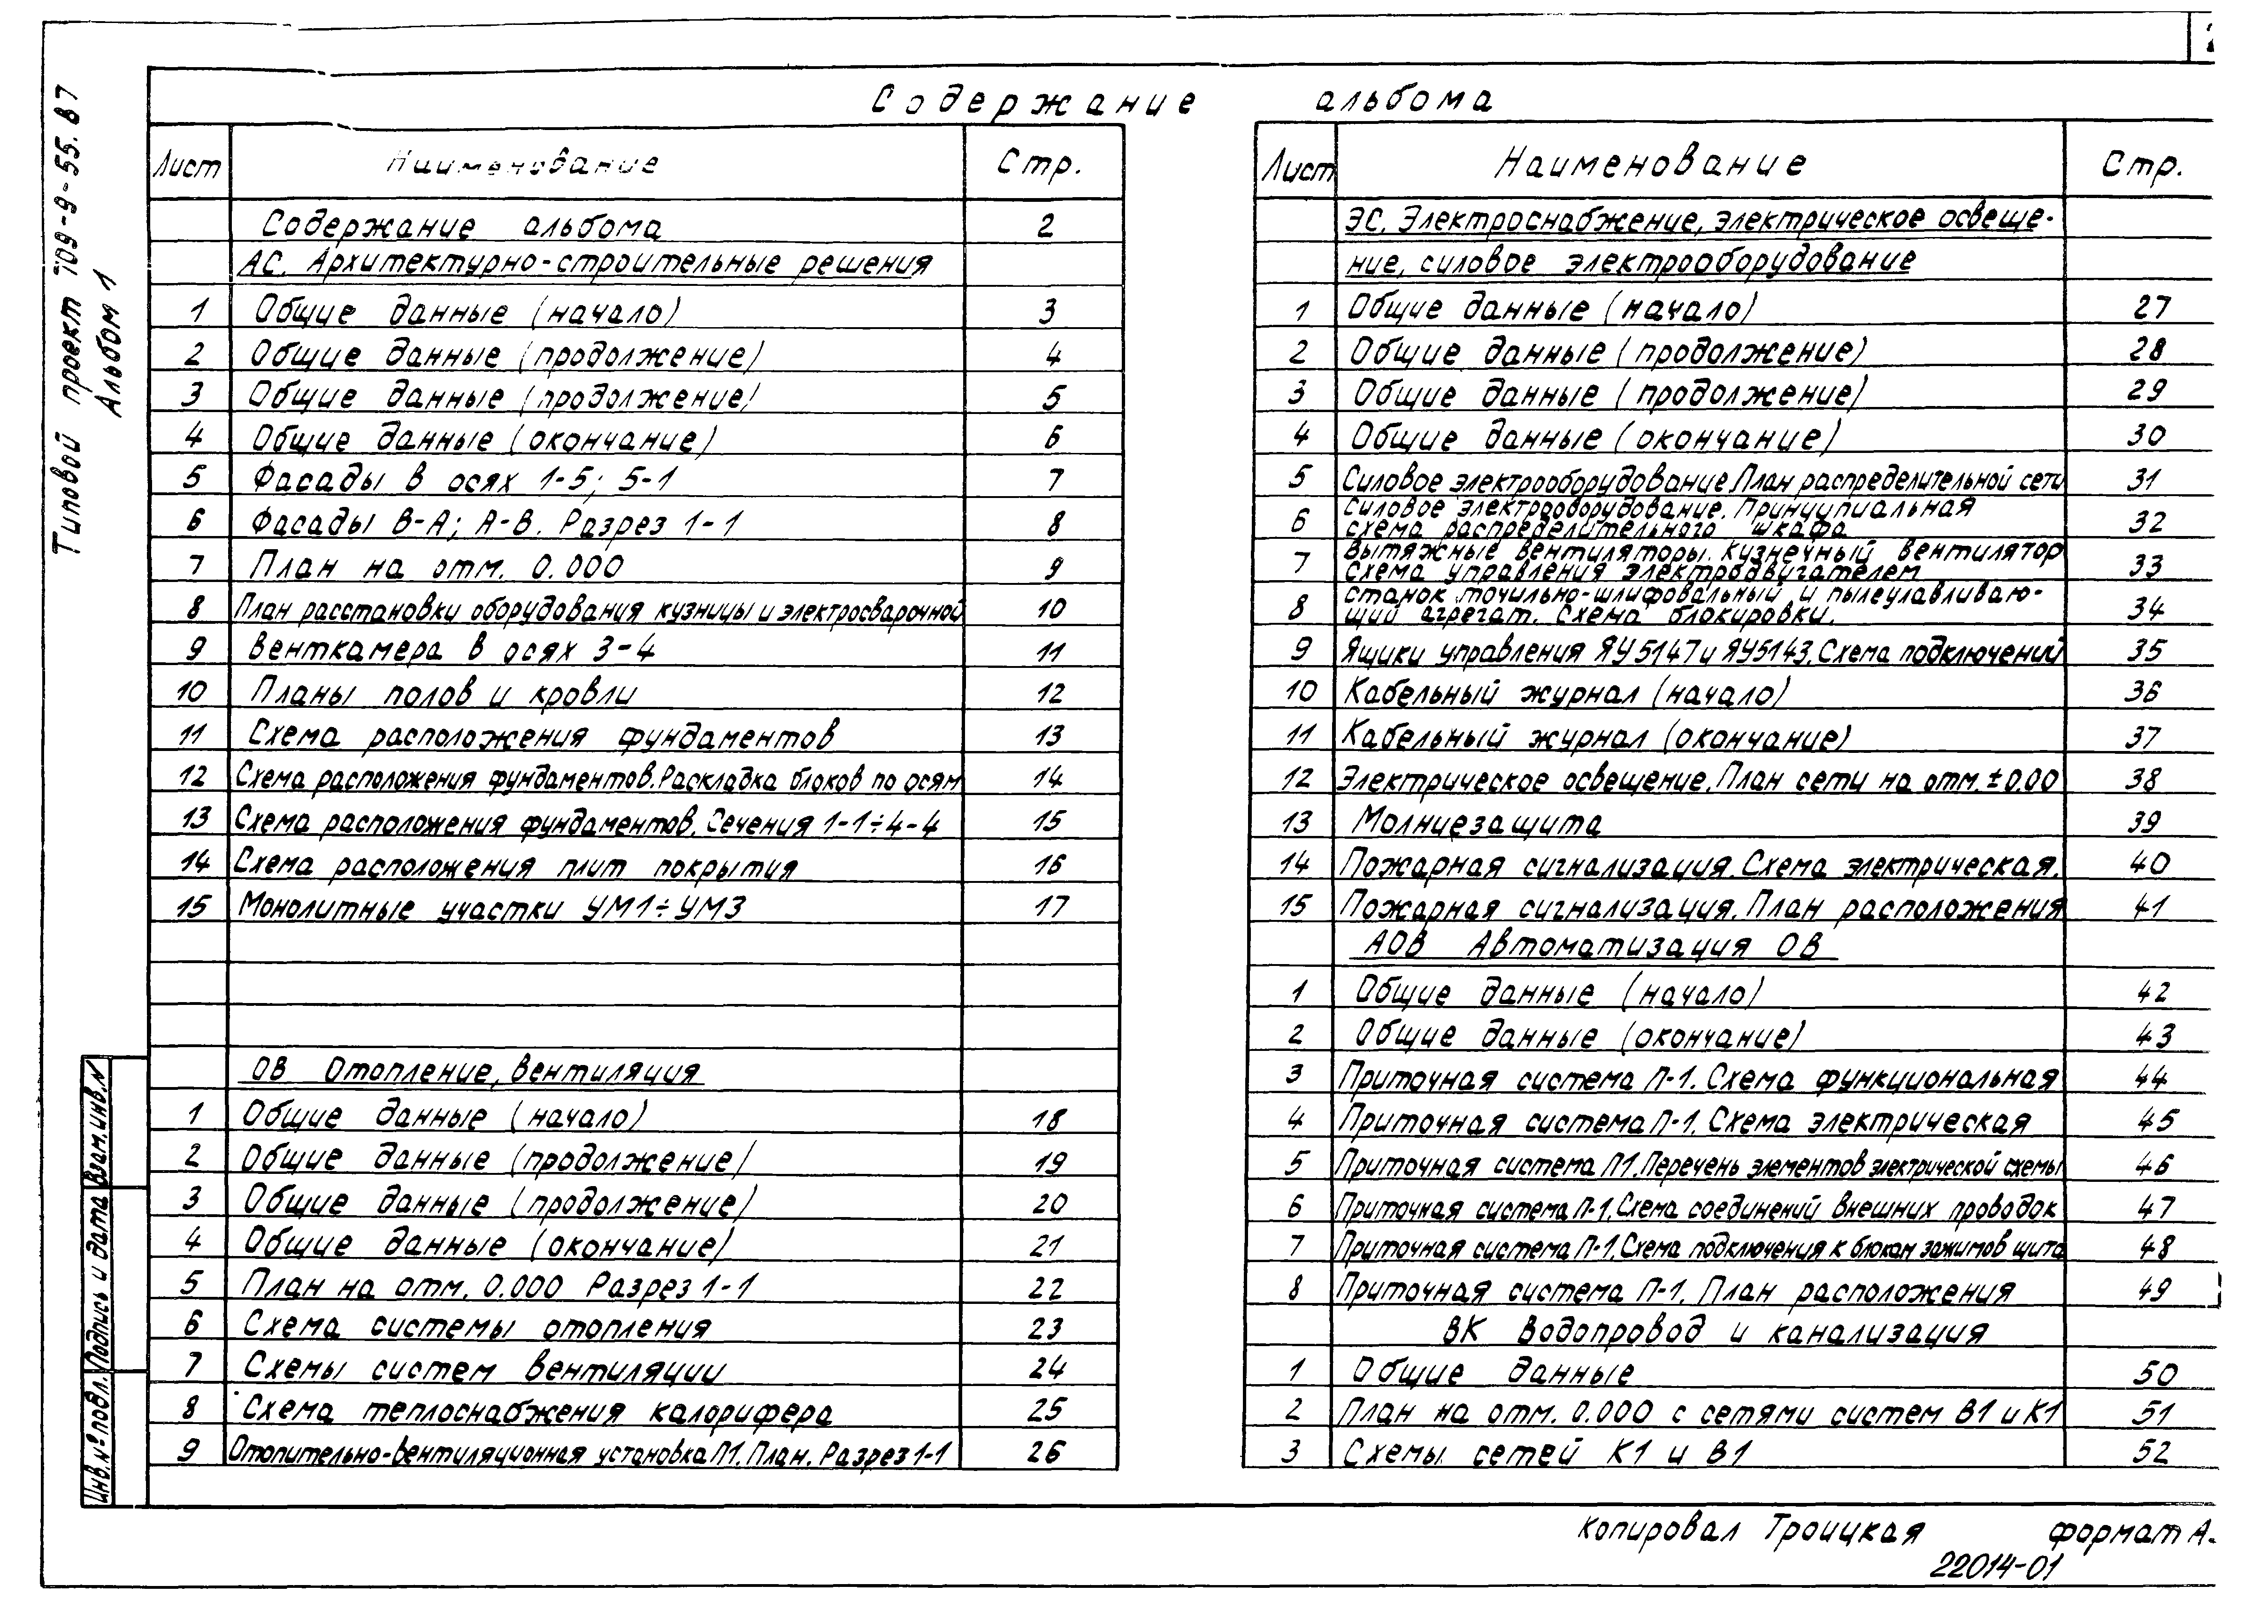 Содержание альбома
Типовой проект 709-9-55.87
Альбом 1
Лист Наименование Стр.
Содержание альбома 2
АС. Архитектурно-строительные решения
1 Общие данные (начало) 3
2 Общие данные (продолжение) 4
3 Общие данные (продолжение) 5
4 Общие данные (окончание) 6
5 Фасады в осях 1-5; 5-1 7
6 Фасады В-А; А-В. Разрез 1-1 8
7 План на отм. 0.000 9
8 План расстановки оборудования кузницы и электросварочной 10
9 Венткамера в осях 3-4 11
10 Планы полов и кровли 12
11 Схема расположения фундаментов 13
12 Схема расположения фундаментов. Раскладка блоков по осям 14
13 Схема расположения фундаментов. Сечения 1-1÷4-4 15
14 Схема расположения плит покрытия 16
15 Монолитные участки УМ1÷УМ3 17
ОВ Отопление, вентиляция
1 Общие данные (начало) 18
2 Общие данные (продолжение) 19
3 Общие данные (продолжение) 20
4 Общие данные (окончание) 21
5 План на отм. 0.000 Разрез 1-1 22
6 Схема системы отопления 23
7 Схемы систем вентиляции 24
8 Схема теплоснабжения калорифера 25
9 Отопительно-вентиляционная установка П1. План. Разрез 1-1 26
Лист Наименование Стр.
ЭС. Электроснабжение, электрическое освеще-
ние, силовое электрооборудование
1 Общие данные (начало) 27
2 Общие данные (продолжение) 28
3 Общие данные (продолжение) 29
4 Общие данные (окончание) 30
5 Силовое электрооборудование. План распределительной сети 31
6 Силовое электрооборудование. Принципиальная
схема распределительного шкафа 32
7 Вытяжные вентиляторы. Кузнечный вентилятор
Схема управления электродвигателем 33
8 Станок точильно-шлифовальный и пылеулавливаю-
щий агрегат. Схема блокировки. 34
9 Ящики управления ЯУ5147 и ЯУ5143. Схема подключений 35
10 Кабельный журнал (начало) 36
11 Кабельный журнал (окончание) 37
12 Электрическое освещение. План сети на отм. ±0.00 38
13 Молниезащита 39
14 Пожарная сигнализация. Схема электрическая. 40
15 Пожарная сигнализация. План расположения 41
АОВ Автоматизация ОВ
1 Общие данные (начало) 42
2 Общие данные (окончание) 43
3 Приточная система П-1. Схема функциональная 44
4 Приточная система П-1. Схема электрическая 45
5 Приточная система П1. Перечень элементов электрической схемы 46
6 Приточная система П-1. Схема соединений внешних проводок 47
7 Приточная система П-1. Схема подключения к блокам зажимов щита 48
8 Приточная система П-1. План расположения 49
ВК Водопровод и канализация
1 Общие данные 50
2 План на отм. 0.000 с сетями систем В1 и К1 51
3 Схемы сетей К1 и В1 52
Взам.инв.N
Подпись и дата
Инв.№ подл.
Копировал Троицкая формат А.
22014-01